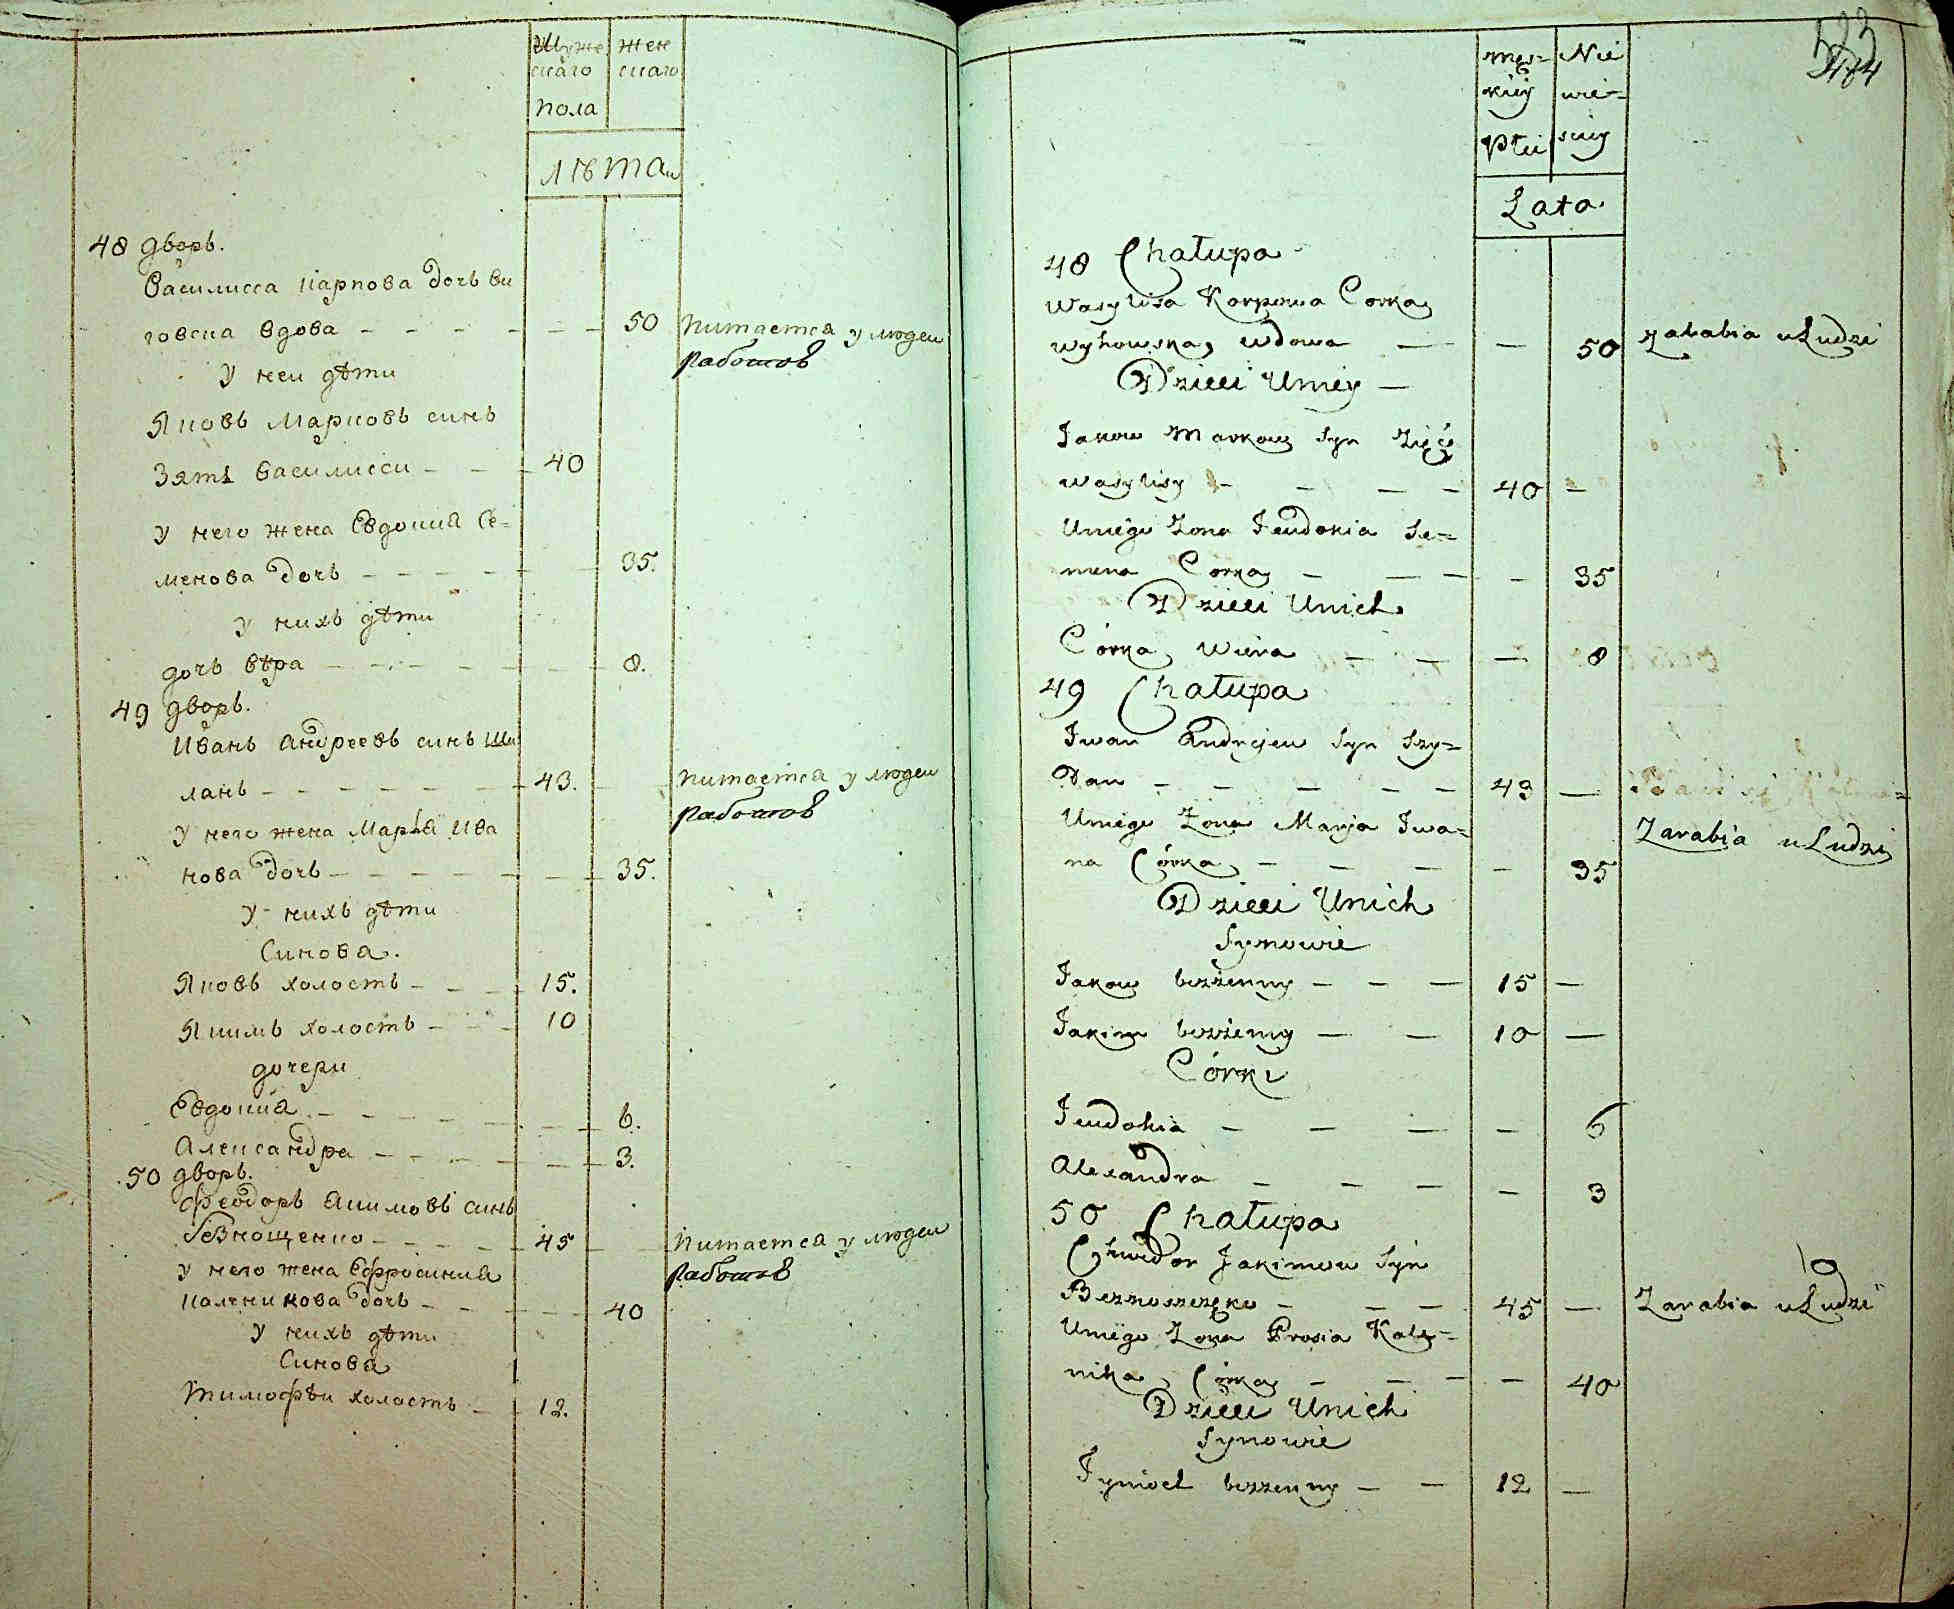 Муже
скаго
пола
жен
скаго
лѣта
48 дворъ.
Василисса Карпова дочь Ви
говска вдова — — — 50 питается у людеи
работов
У неи дѣти
Яковъ Марковъ синъ
Зять Василисси — — 40
У него жена Евдокия Се=
менова дочь — — — 35.
У нихъ дѣти
дочь Вѣра — — — 8.
49 дворъ.
Иванъ Андреевъ синъ Ши
ланъ — — — 43. питается у людеи
работов
У него жена Марья Ива
нова дочь — — — 35.
У нихъ дѣти
Синова.
Яковъ холостъ — — 15.
Якимъ холостъ — — 10
дочери
Евдокия — — — 6.
Александра — — — 3.
50 дворъ.
Феодоръ Акимовъ синъ
Безнощенко — — — 45 питается у людеи
работов
У него жена Ефросиния
Каленикова дочь — — 40
У нихъ дѣти
Синова
Тимофѣи холостъ — 12.
męs=
kiiy
Płci
Nie
wie=
sciiy
Lata
484
48 Chałupa
Wasylisa Karpowa Corka
Wyhowska, wdowa — — 50 Zarabia u Ludzi
Dzieci Uniey —
Jakow Markow Syn Zięć
Wasylisy — — — 40 —
Uniego Zona Jewdokia Se=
mena Corka — — — 35
Dzieci Unich
Córka Wiera — — — 8
49 Chałupa
Iwan Andrejew Syn Szy=
łan — — — 43 —
Uniego Zona Marja Iwa=
na Córka — — — 35 Zarabia u Ludzi
Dzieci Unich
Synowie
Jakow bezżenny — — — 15 —
Jakim bezżenny — — 10 —
Córki
Jewdokia — — — — 6
Alexandra — — — — 3
50 Chałupa
Chwedor Jakimow Syn
Beznoszczęko — — — 45 — Zarabia u Ludzi
Uniego Zona Prosia Kale=
nika Córka — — — — 40
Dzieci Unich
Synowie
Tymoch bezżenny — — 12 —